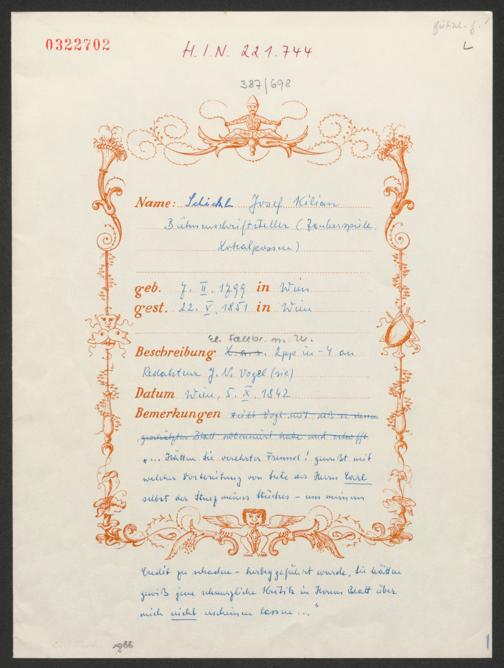 0322702
H.I.N. 221.744
L
387/698
Name: Schickh Josef Kilian
Bühnenschriftsteller (Zauberspiele
Lokalpossen)
geb. 7. II. 1799 in Wien
gest. 22. V. 1851 in Wien
m. U.
Beschreibung 2pp in-4 an
Redakteur J. N. Vogel (sic)
Datum Wien, 5. X. 1842
Bemerkungen
"... Hätten Sie verehrter Freund! gewußt mit
welcher Vorbereitung von Seite des Herrn Carl
selbst der Sturz meines Stückes - um meinem
Credit zu schaden - herbeygeführt wurde, Sie hätten
gewiß jene schmerzliche Kritik in Ihrem Blatt über
mich nicht erscheinen lassen ..."